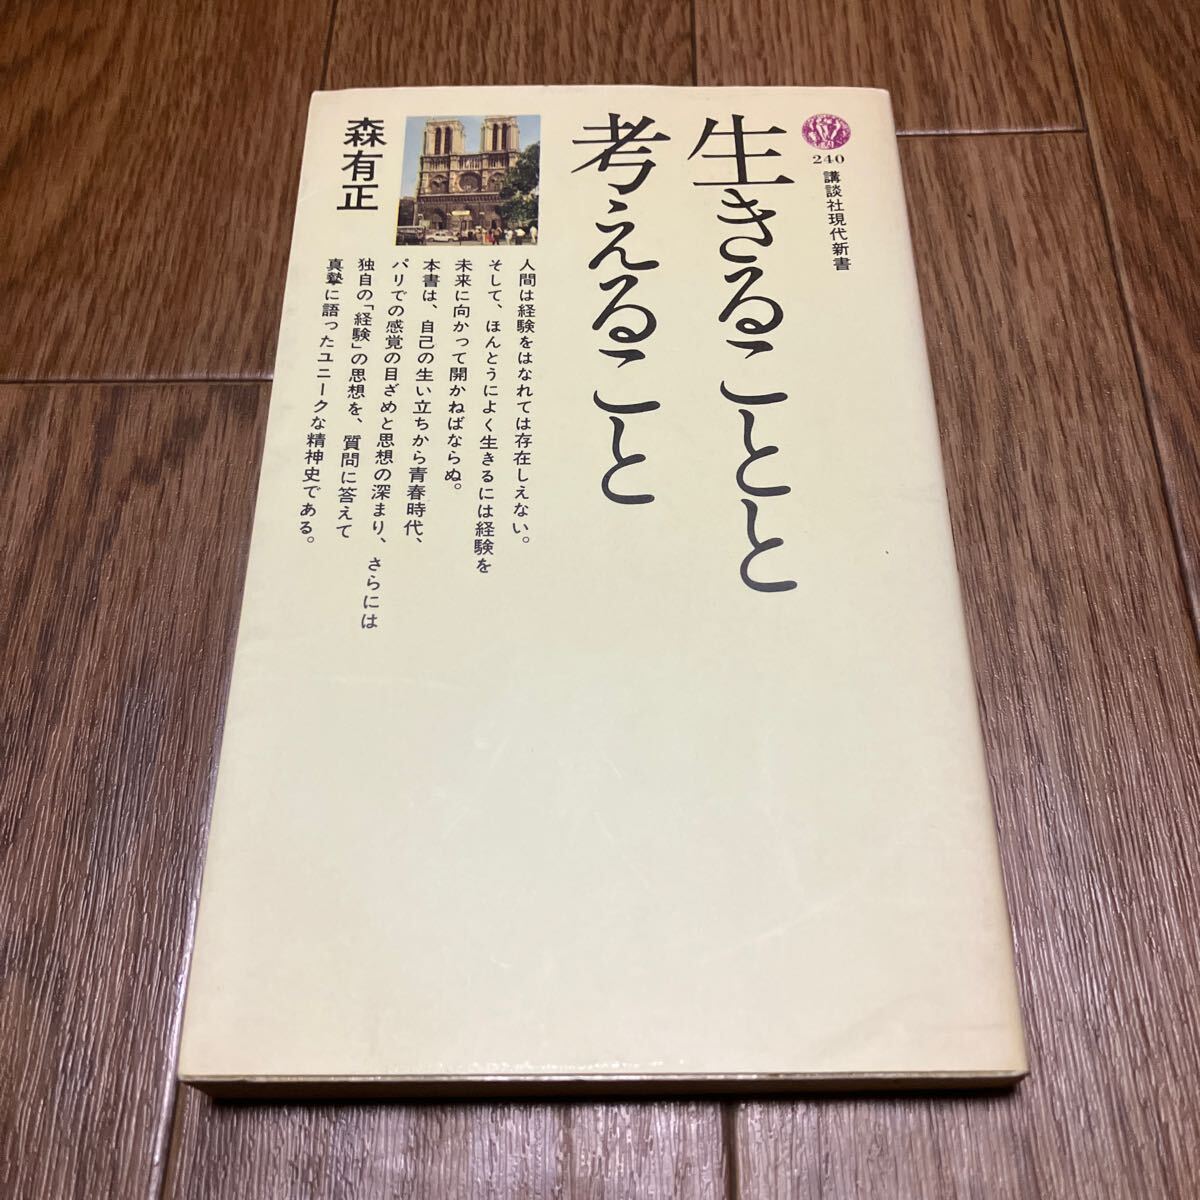 240
講談社現代新書
生きることと
考えること
森有正
人間は経験をはなれては存在しえない。
そして、ほんとうによく生きるには経験を
未来に向かって開かねばならぬ。
本書は、自己の生い立ちから青春時代、
パリでの感覚の目ざめと思想の深まり、さらには
独自の「経験」の思想を、質問に答えて
真摯に語ったユニークな精神史である。